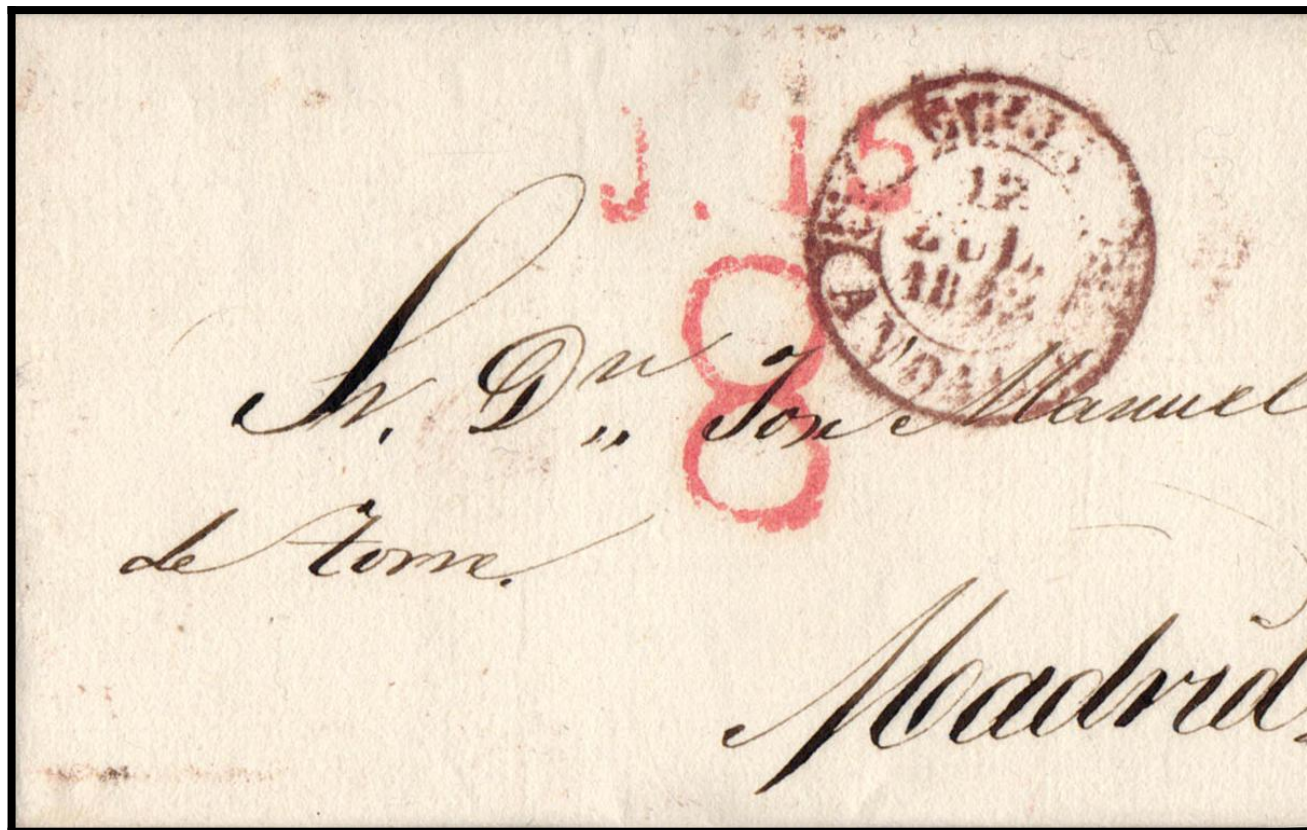 J. 15
12
JUL.
1842
8
Sr. Dn. Jose Manuel
de Torre.
Madrid.